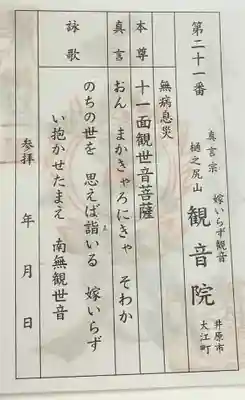 第二十一番
真言宗 嫁いらず観音
樋之尻山 観音院 井原市
大江町
無病息災
本尊 十一面観世音菩薩
真言 おん まかきゃろにきゃ そわか
詠歌 のちの世を 思えば詣いる 嫁いらず
い抱かせたまえ 南無観世音
参拝 年 月 日